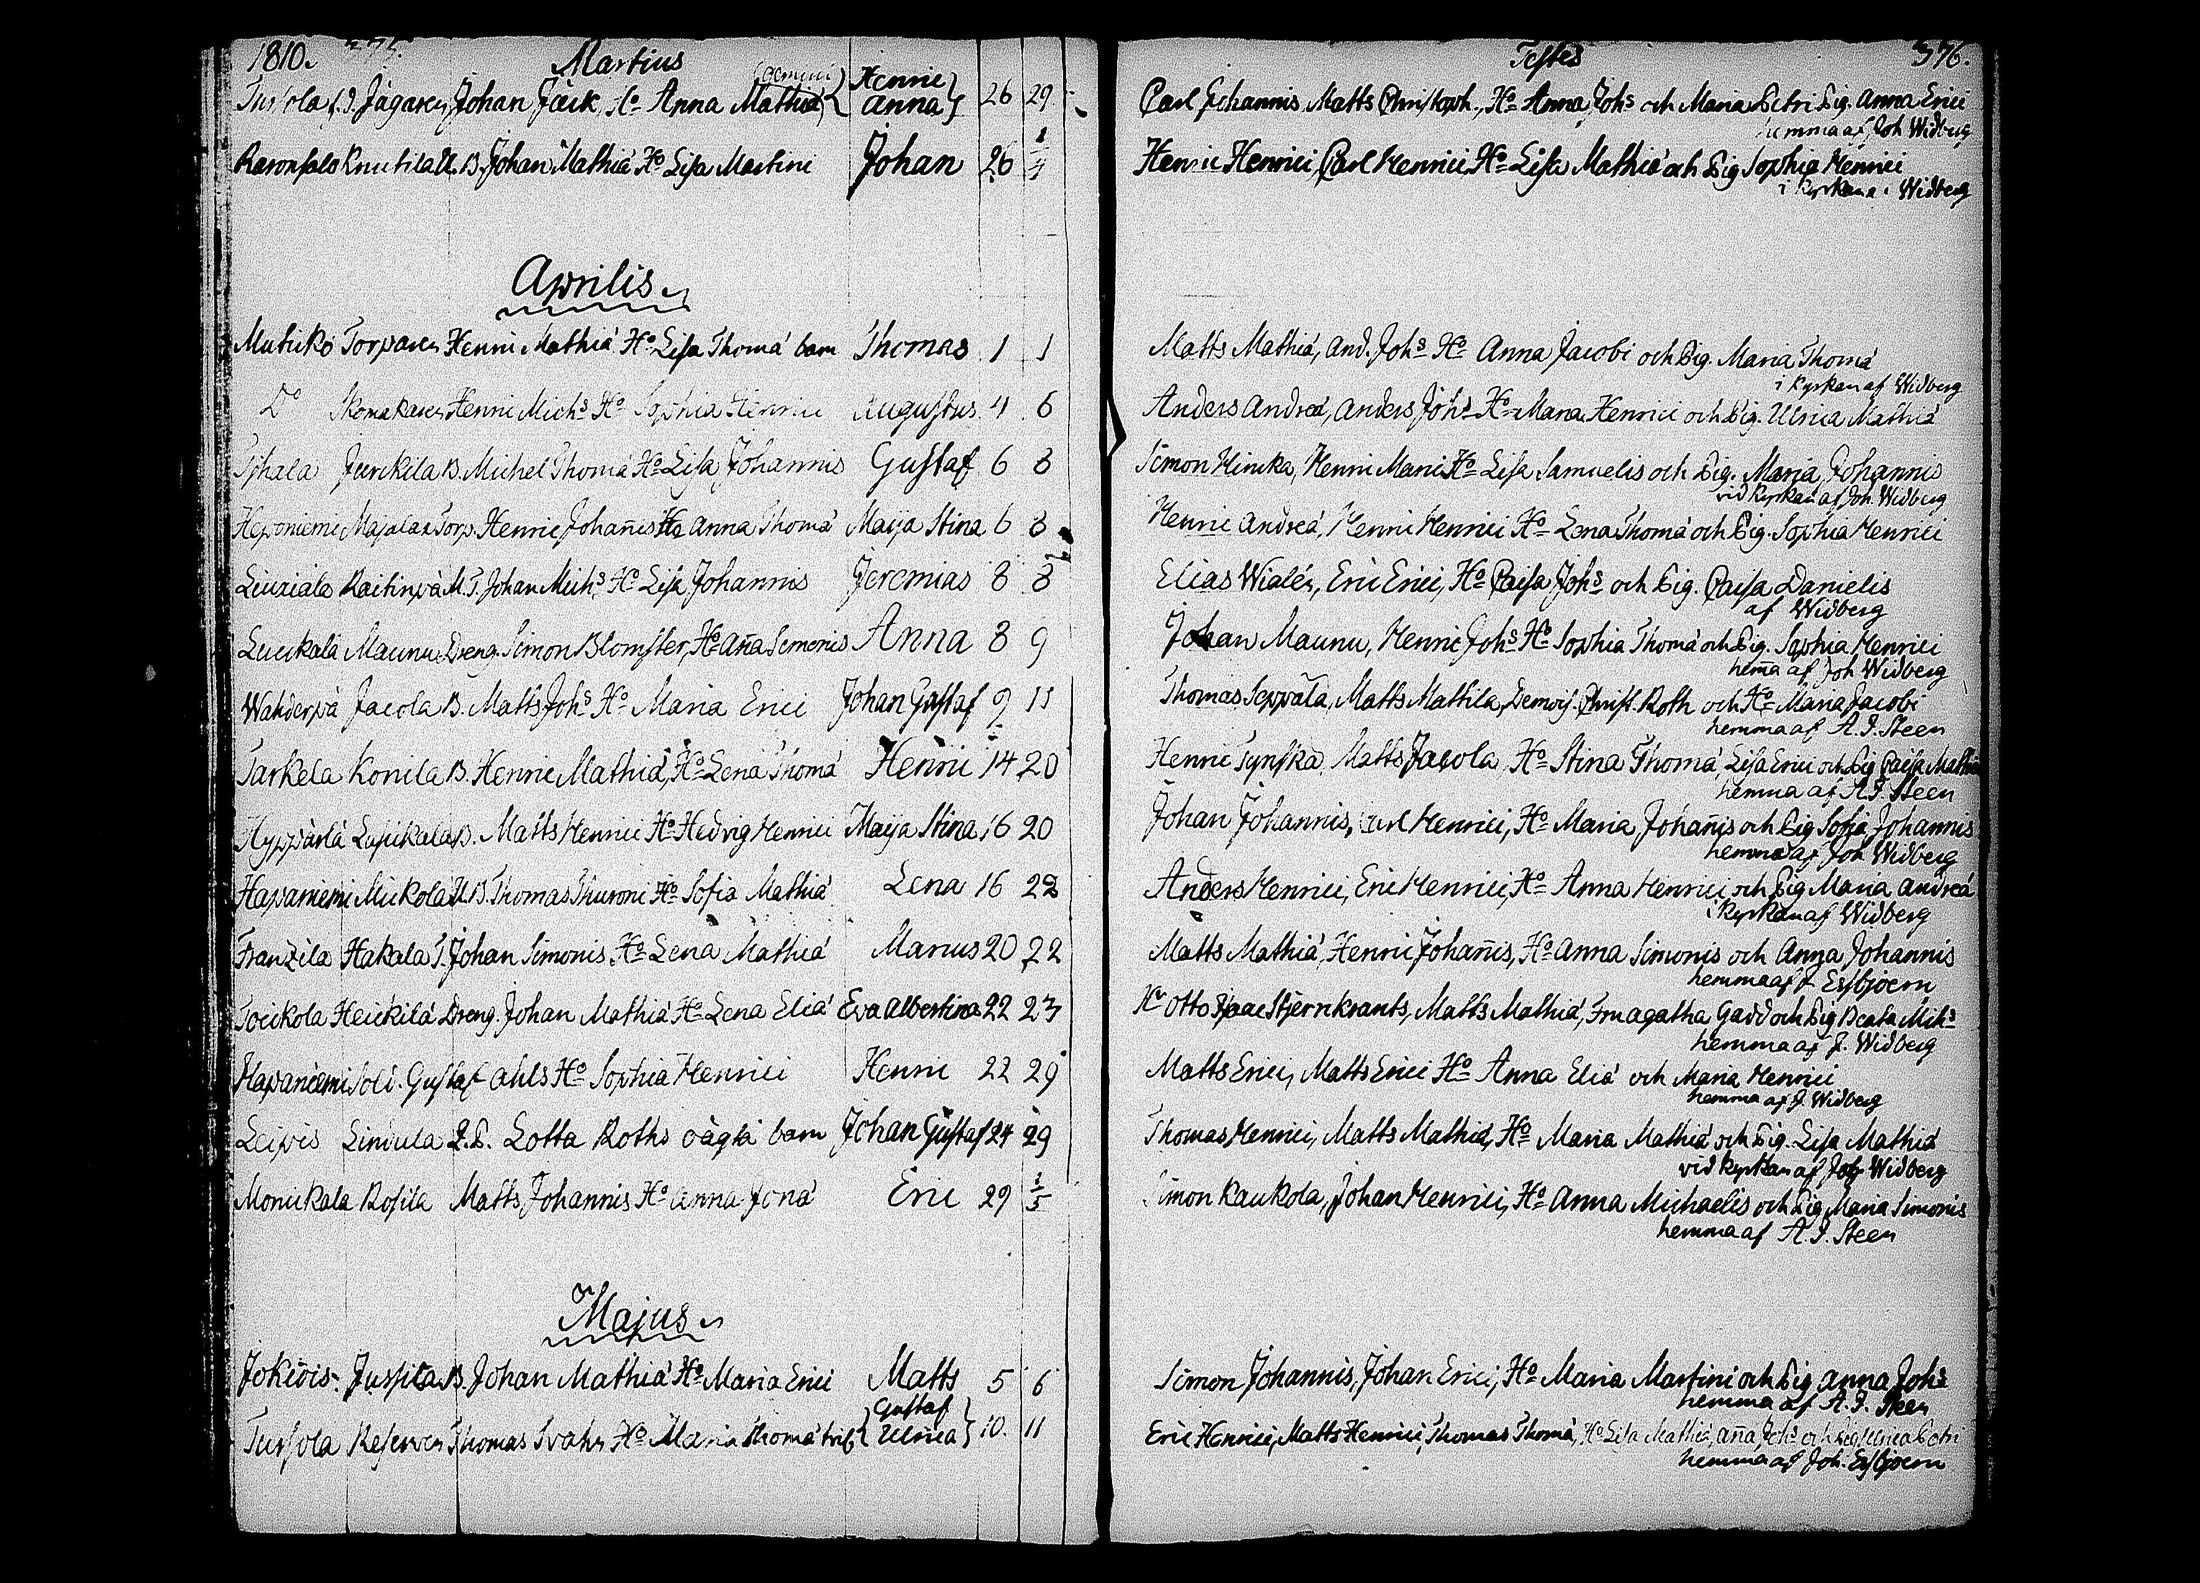 1810. 375. Martius
Tursola f.d. Jägaren Johan Fäik, Ho Anna Mathiæ (gemini) { Henric Anna } 26 29
Raronsalo Knutila U.B. Johan Mathiæ Ho Lisa Martini Johan 26 1/4
Aprilis
Mutiko Torparen Henric Mathiæ Ho Lisa Thomæ barn Thomas 1 1
Do Skomakaren Henric Michs Ho Sophia Henrici Augustus 4 6
Jurikila B. Michel Thomæ Ho Lisa Johannis Gustaf 6 8
Heponiemi Majalax Torp. Henric Johañis Ho Anna Thomæ Maija Stina 6 8
Liuxiala Raitinpä M.T. Johan Michs Ho Lisa Johannis Jeremias 8 8
Liuckala Maunu Dreng. Simon Blomster, Ho Aña Simonis Anna 8 9
Wahderpä Jacola B. Matts Johs Ho Maria Erici Johan Gustaf 9 11
Tarkela Konila B. Henric Mathiæ, Ho Lena Thomæ Henric 14 20
Hyppärlä B. Matts Henrici Ho Hedvig Henrici Maija Stina 16 20
Hapaniemi Mickola U.B. Thomas Thuroni Ho Sofia Mathiæ Lena 16 22
Franzila Hakala T. Johan Simonis Ho Lena Mathiæ Marius 20 22
Toickola Heickilä Dreng. Johan Mathiæ Ho Lena Eliæ Eva Albertina 22 23
Hapaniemi Sold. Gustaf Ahls Ho Sophia Henrici Henric 22 29
Leipis Lindula Lotta Roths oägta barn Johan Gustaf 24 29
Monickala Rosila Matts Johannis Ho Anna Jonæ Eric 29 1/5
Majus
Jokiois. Jussila B. Johan Mathiæ Ho Maria Erici Matts 5 6
Tursola Reserven Thomas Svahn Ho Maria Thomæ { Gustaf Ulrica } 10. 11
Testes 376.
Carl Johannis Matts Christoph., Ho Anna Johs och Maria Petri Pig. Anna Erici
hemma af Joh Widberg
Henric Henrici, Carl Henrici, Ho Lisa Mathiæ och Pig Sophia Henrici
i kyrkan a. Widberg
Matts Mathiæ, And. Johs Ho Anna Jacobi och Pig. Maria Thomæ
i kyrkan af Widberg
Anders Andreæ, Anders Johs Ho Maria Henrici och Pig. Ulrica Mathiæ
Simon Hinrika, Henric Ho Lisa Samuelis och Pig. Maria Johannis
vid kyrkan af Joh. Widberg
Henric Andreæ, Henric Henrici Ho Lena Thomæ och Pig. Sophia Henrici
Elias Widlén, Eric Erici, Ho Caisa Johs och Pig. Caisa Danielis
af Widberg
Johan Maunu, Henric Johs Ho Sophia Thomæ och Pig. Sophia Henrici
hem̃a af Joh Widberg
Thomas Seppälä, Matts Mathila, Demois. Christ. Roth och Ho Maria Jacobi
hemma af A. J. Steen
Henric Matts Jacola, Ho Stina Thomæ, Lisa Erici och Pig Caisa Mathiæ
hemma af A J Steen
Johan Johannis, Carl Henrici, Ho Maria Johañis och Pig Sofia Johannis
hemma af Joh Widberg
Anders Henrici, Eric Henrici, Ho Anna Henrici och Pig Maria Andreæ
i kyrkan af Widberg
Matts Mathiæ, Henric Johañis, Ho Anna Simonis och Anna Johannis
hemma af J Essbjoern
Hr Otto Isaac Stjernkrants, Matts Mathiæ, Fru Agatha Gadd och Pig Beata Michs
hemma af J. Widberg
Matts Erici, Matts Erici Ho Anna Eliæ och Maria Henrici
hemma af J. Widberg
Thomas Henrici, Matts Mathiæ, Ho Maria Mathiæ och Pig. Lisa Mathiæ
vid kyrkan af Joh Widberg
Simon Kaukola, Johan Henrici, Ho Anna Michaelis och Pig Maria Simonis
hemma af A. J. Steen
Simon Johannis, Johan Erici, Ho Maria Martini och Pig Anna Johs
hemma af A. J. Steen
Eric Henrici, Matts Henrici, Thomas Thomæ, Ho Lisa Mathiæ, Aña Johs och Pig Ulrica Petri
hemma af Joh. Essbjoern